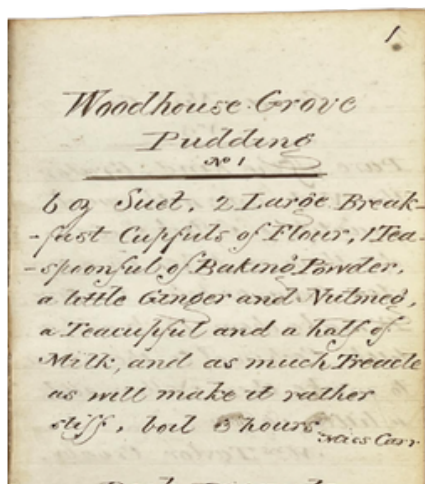 1
Woodhouse Grove
Pudding
No 1
6 oz Suet, 2 Large Break-
-fast Cupfuls of Flour, 1 Tea-
-spoonful of Baking Powder,
a little Ginger and Nutmeg,
a Teacupful and a half of
Milk, and as much Treacle
as will make it rather
stiff, boil 3 hours
Miss Carr